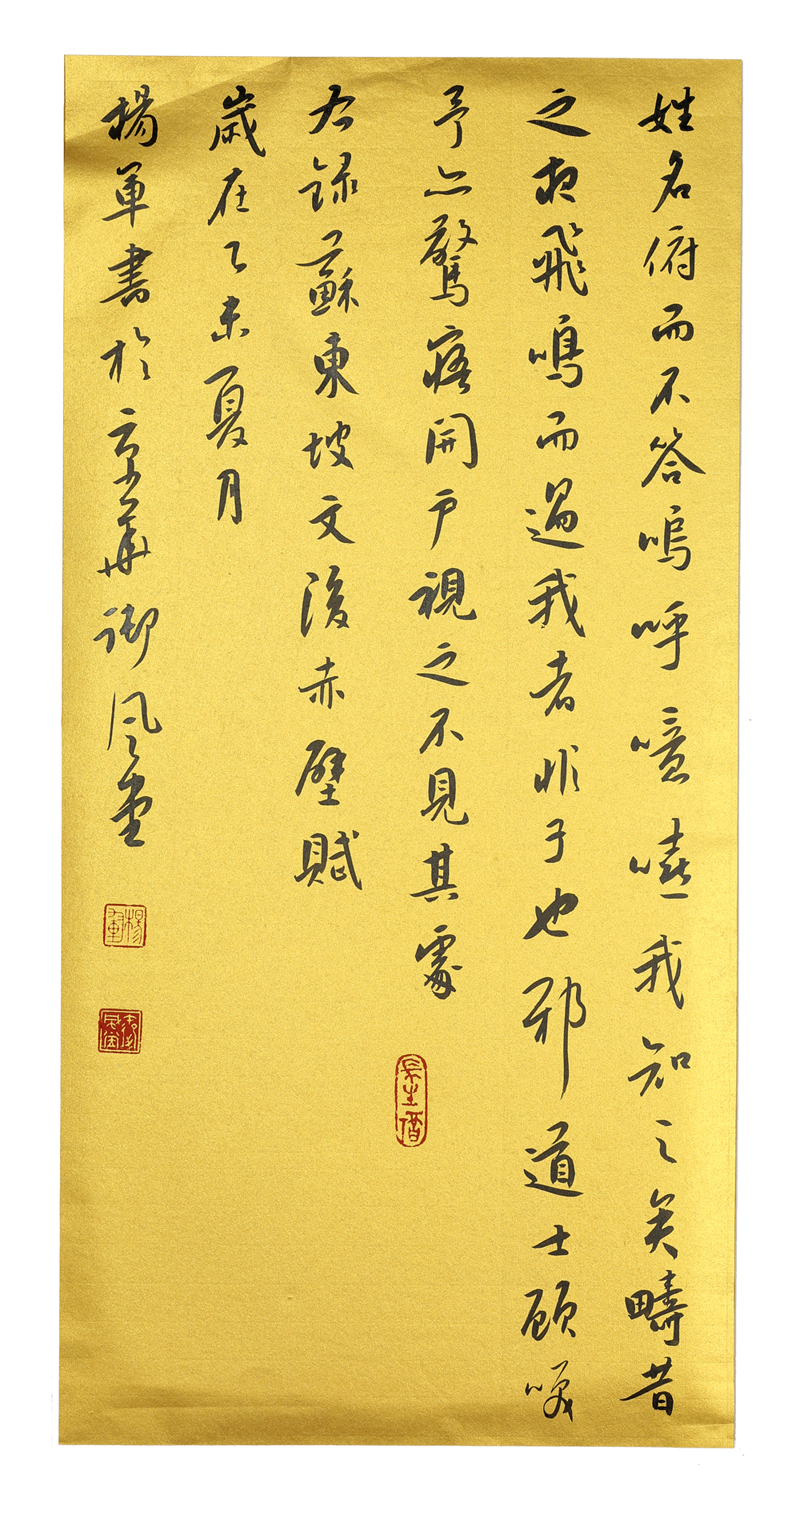 姓名俯而不答嗚呼噫嘻我知之矣疇昔
之夜飛鳴而過我者非子也邪道士顧咲
予亦驚寤開戶視之不見其處
右録蘇東坡文後赤壁賦
歲在乙未夏月
楊軍書於京華御風堂
楊軍